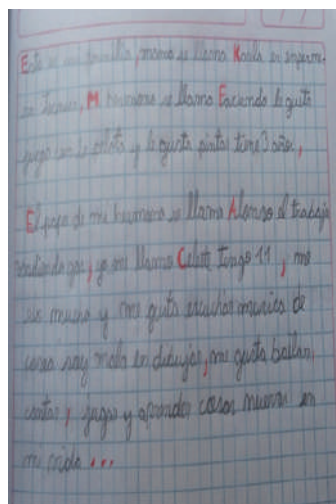 Esta es mi familia, mamá se llama Karla es enferme-
ra Tecnico, Mi hermano se llama Facundo le gusta
jugar con la pelota y le gusta pintar tiene 3 años,
El papa de mi hermano se llama Alonso el trabaja
vendiendo gas, yo me llamo Celeste tengo 11, me
rio mucho y me gusta escuchar musica de
soy mala en dibujar, me gusta bailar,
cantar, jugar y aprender cosas nuevas en
mi vida...